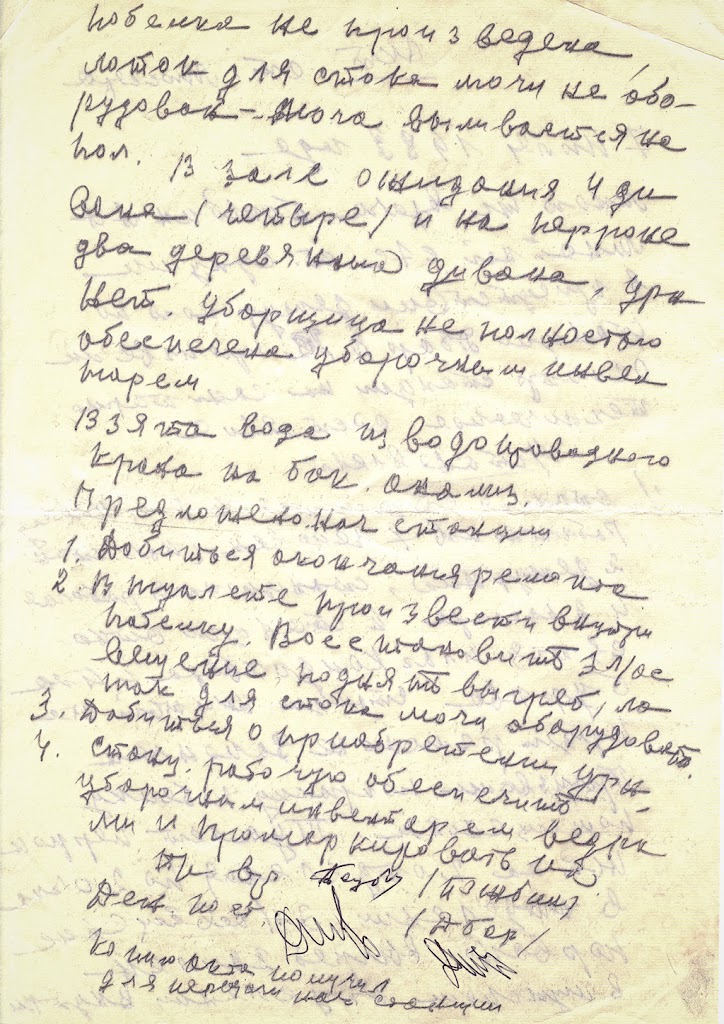 побелка не произведена,
лоток для стока мочи не обо-
рудован - моча выливается на
пол. В зале ожидания 4 ди
вана (четыре) и на перроне
два деревянных дивана, урн
нет. уборщица не полностью
обеспечена уборочным инвен
тарем
Взята вода из водопроводного
крана на бак. анализ.
Предложено нач станции
1. Добиться окончания ремонта
2. В туалете произвести внутри
побелку. Восстановить эл/ос
вещение поднять выгреб, ло
ток для стока мочи оборудовать.
3. Добиться о приобретении урн.
4. стан. рабочую обеспечить
уборочным инвентарем ведра
ми и промаркировать их
Деж. по ст. /Дбар/
копию акта получил
для передачи нач. станции